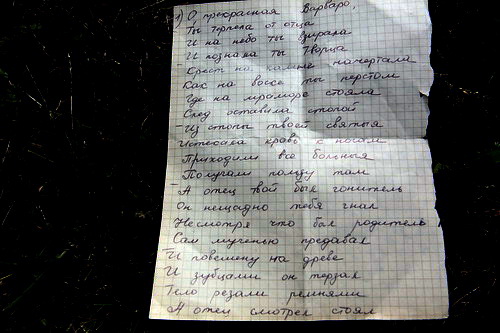 1) О прекрасная Варваро,
Ты терпела от отца
И на небо ты взирала
И познала ты Творца
- Крест на камне начертала
Как на воске ты перстом
Где на мраморе стояла
След оставили стопой
- Из стопы твоей святыя
Истекала кровь к ногам
Приходили все больныя
Получали пользу там
- А отец твой был гонитель
Он нещадно тебя гнал
Несмотря что был родитель
Сам мученью предавал
И повешену на древе
И зубцами он терзал
Тело резали ремнями
А отец смотрел стоял